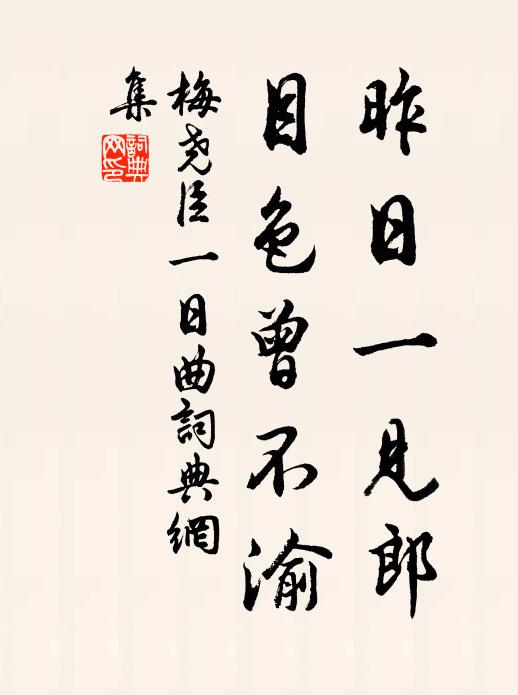 昨日一見郎
目色曾不渝
梅堯臣一日曲詞典網
集
詞典網印